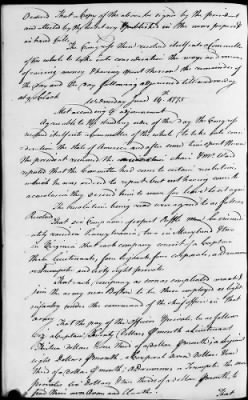 Ordered That a Copy of the above be signed by the president
and attested by the secretary & published in the news papers &
in hand bills.
The Congress then resolved itself into a Committee
of the whole to take into consideration the ways and means
of raising money & having spent therein the remainder of
the day and the day following adjourned till wednesday
at 9 oClock
Wednesday June 14th 1775
Met according to adjournment
Agreeable to the standing order of the day the Congress
resolved itself into a committee of the whole to take into consi
deration the state of America and after some time spent therein
the president resumed the chair & Mr Ward
reported that the Committee had come to certain resolutions
which he was ordered to report but not having come to
a conclusion they desired him to move for leave to sit again
The Resolutions being read were agreed to as follows
Resolved
That six Companies of expert Rifflemen be immed
iately raised in Pennsylvania, two in Maryland & two
in Virginia that each company consist of a Captain
three lieutenants, four serjeants four corporals, a drummer
or trumpeter and sixty eight privates
That each company as soon as compleated march &
join the army near Boston to be there employed as light
infantry under the command of the chief officer in that
army
That the pay of the Officers & privates be as follow
ing a Captain twenty Dollars month a lieutenant
thirteen dollars & one third of a dollar month a serjeant
eight dollars month a Corporal seven dollars & one
third of a dollar month, a drummer or trumpeter the same
privates six dollars & two thirds of a dollar month, to
find their own arms and cloaths
That